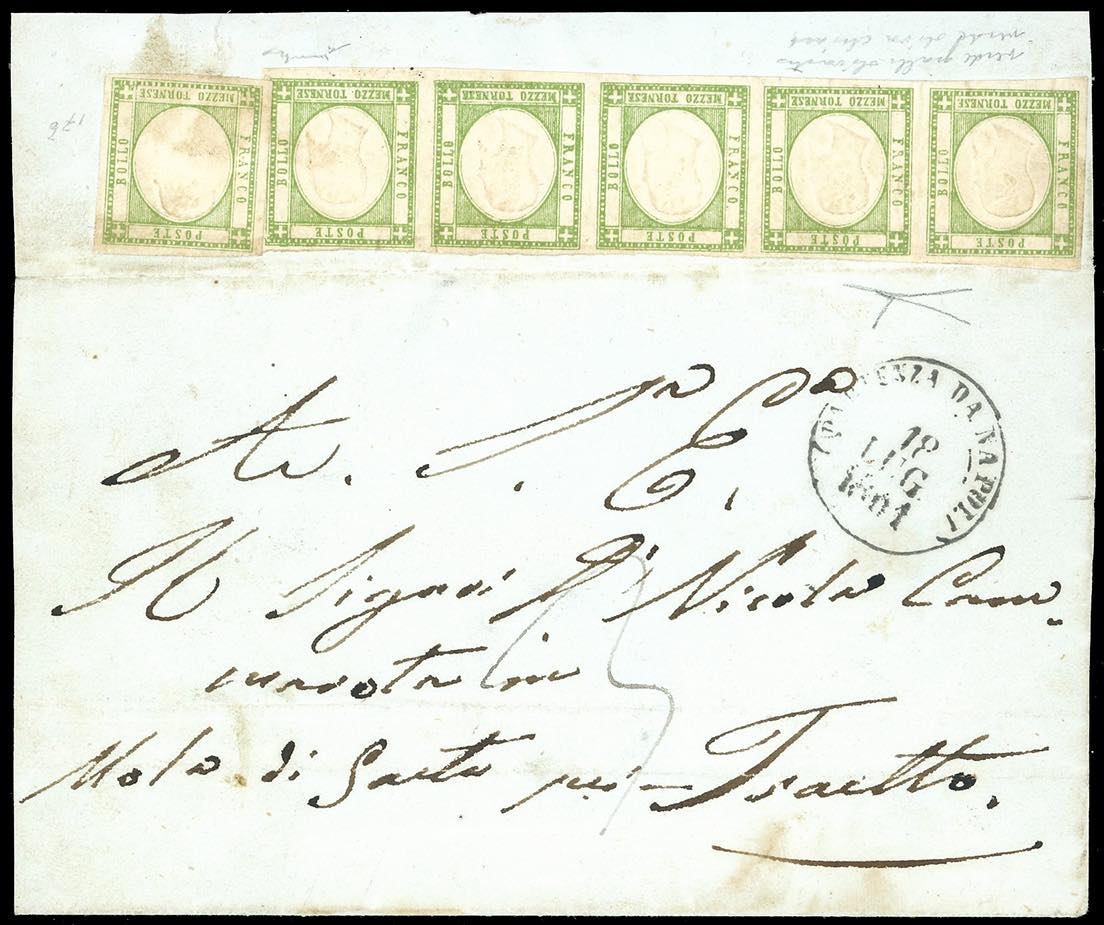 MEZZO TORNESE BOLLO FRANCO POSTE
MEZZO TORNESE BOLLO FRANCO POSTE
MEZZO TORNESE BOLLO FRANCO POSTE
MEZZO TORNESE BOLLO FRANCO POSTE
MEZZO TORNESE BOLLO FRANCO POSTE
MEZZO TORNESE BOLLO FRANCO POSTE
17b
PARTENZA DA NAPOLI
18
LUG
1861
A S. E.
Il Signor Nicola Cam-
marota in
Mola di Gaeta per Traetto.